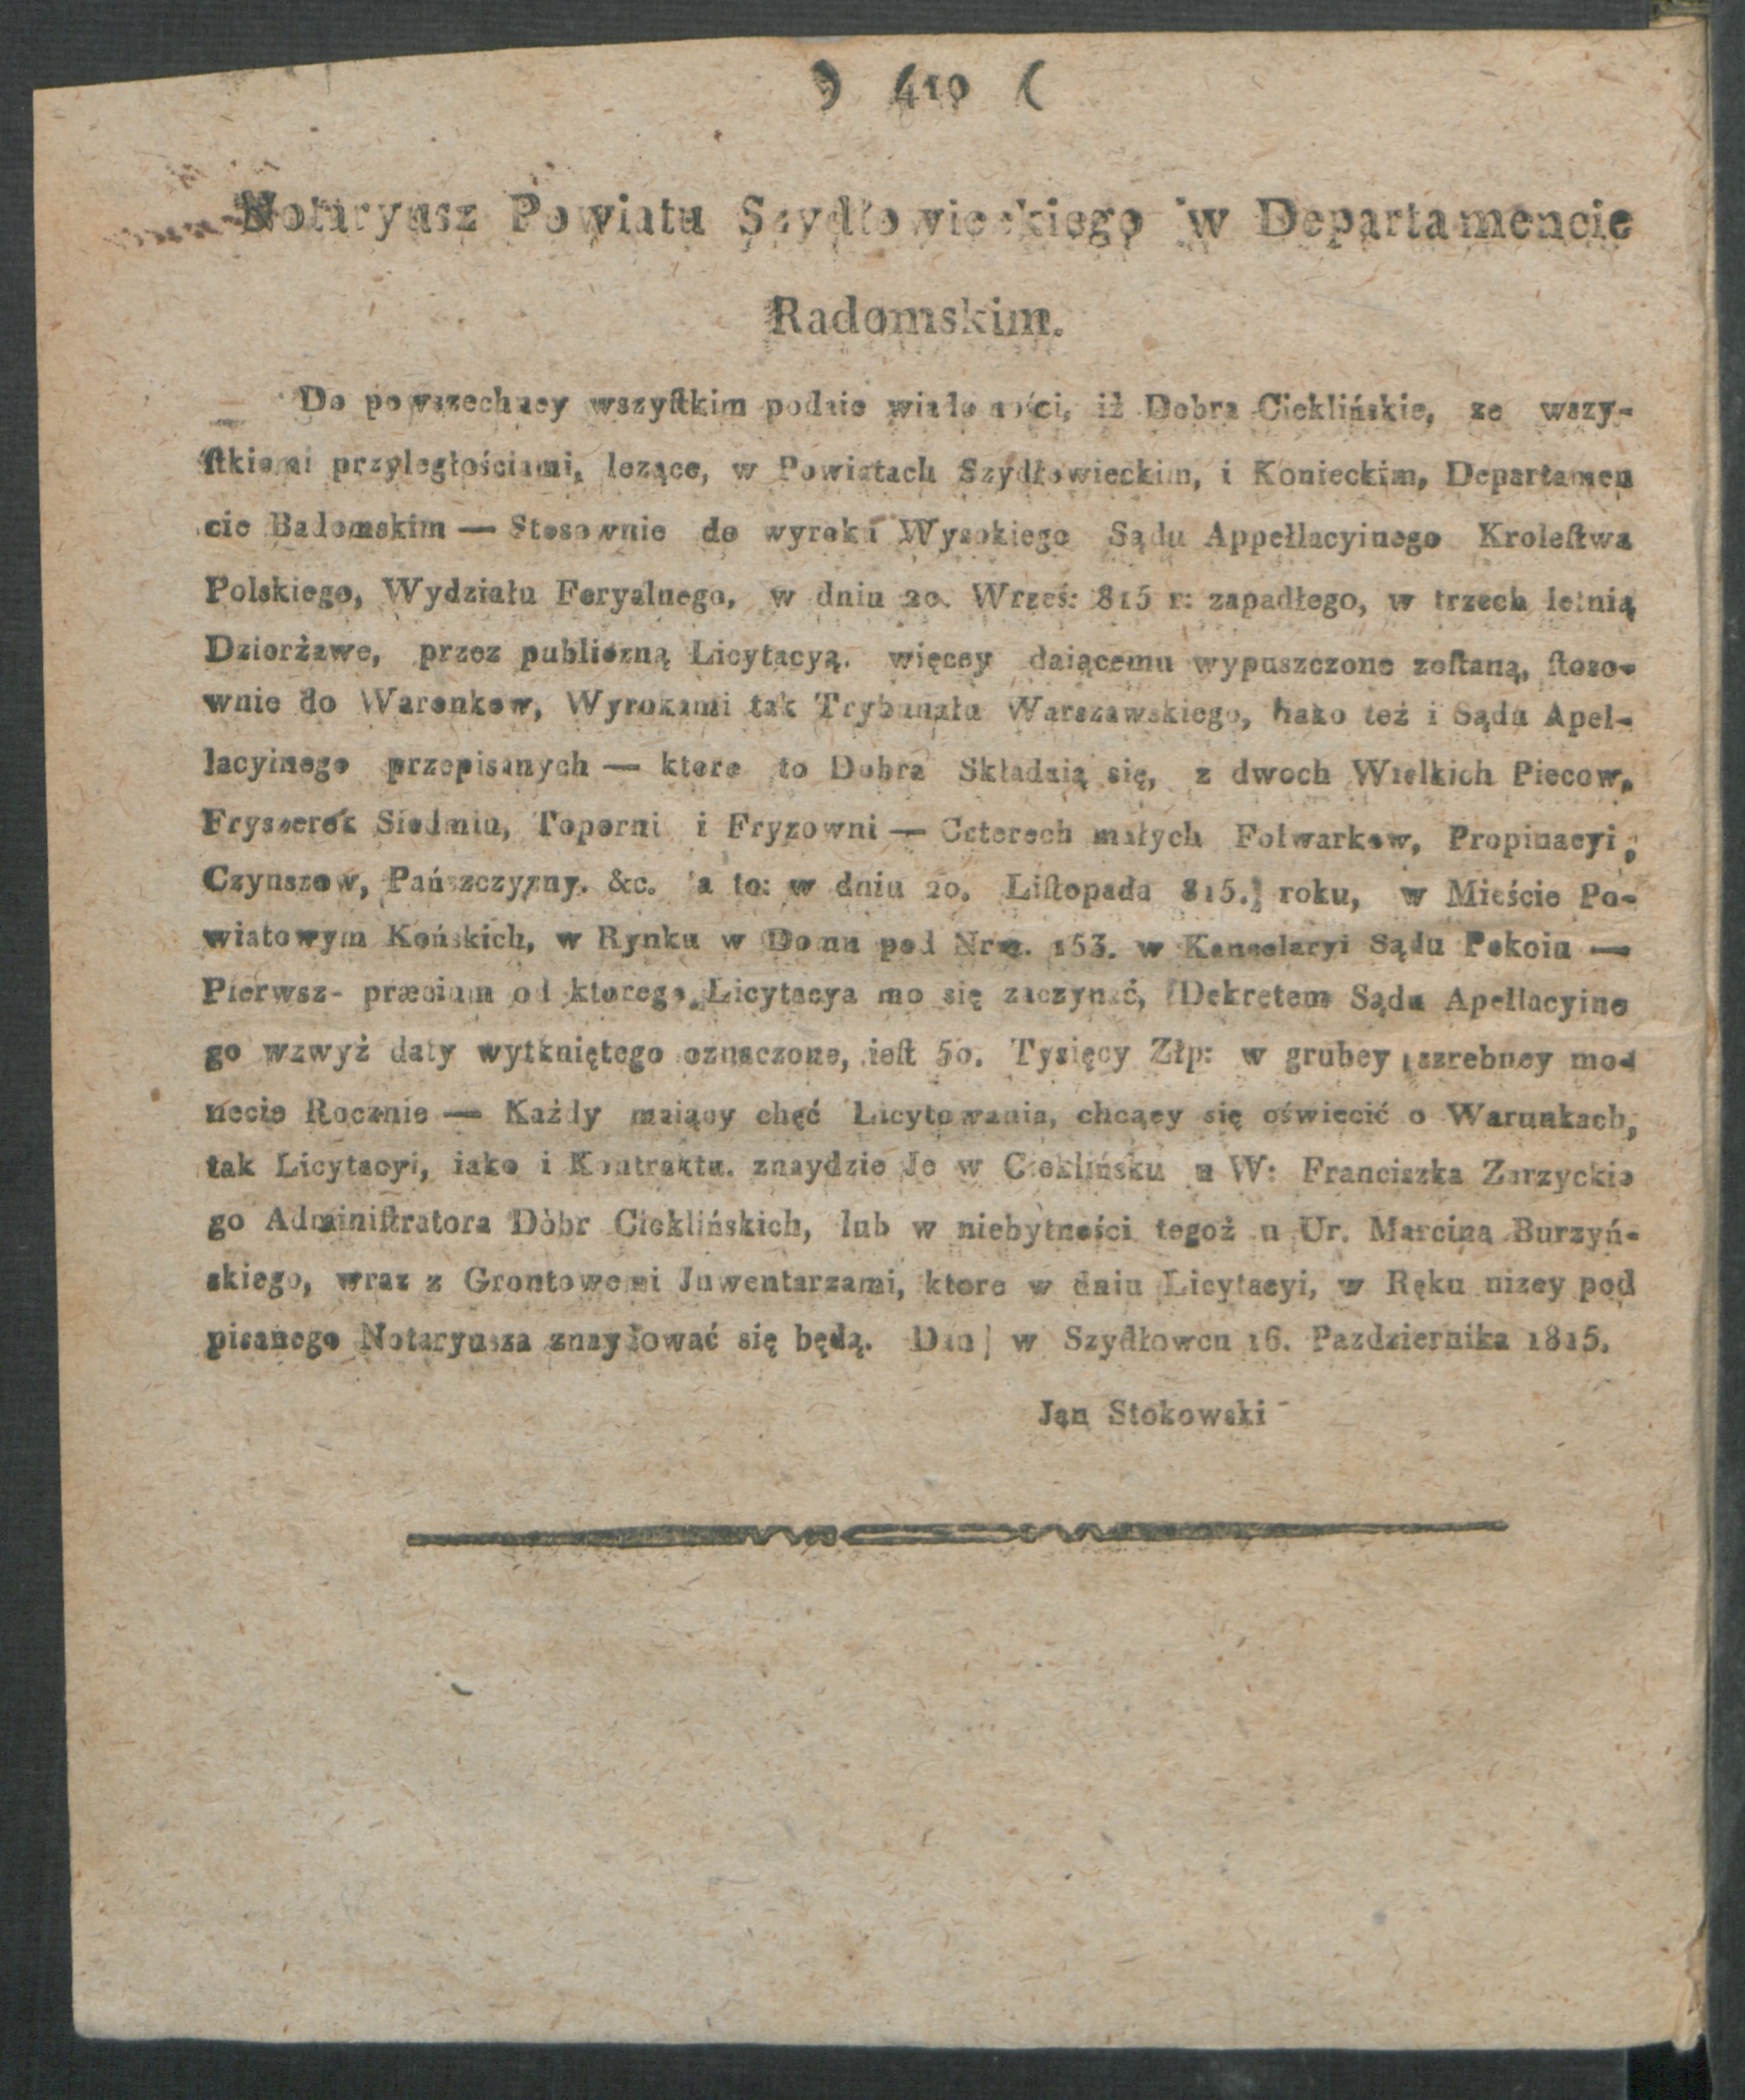 ) 410 (
Notaryusz Powiatu Szydłowieckiego w Departamencie
Radomskim.
Do powszechney wszyſtkim podaie wiadomości, iż Dobra Cieklińskie, ze wszy-
ſtkiemi przyległościami, lezące, w Powiatach Szydłowieckim, i Konieckim, Departamen
cie Badomskim — Stosownie do wyroku Wysokiego Sądu Appełlacyinego Kroleſtwa
Polskiego, Wydziału Feryalnego, w dniu 20. Wrześ: 815 r: zapadłego, w trzech letnią
Dzierżawe, przez publiczną Licytacyą. więcey daiącemu wypuszczone zoſtaną, ſtoso-
wnie do Waronkow, Wyrokami tak Trybunału Warszawskiego, hako też i Sądu Apel-
lacyinego przepisanych — ktore to Dobra Składaią się, z dwoch Wielkich Piecow,
Fryszerek Siedmiu, Toporni i Fryzowni — Czterech małych Folwarkow, Propinacyi,
Czynszow, Pańszczyzny. &c. a to: w dniu 20. Liſtopada 815. roku, w Mieście Po-
wiatowym Końskich, w Rynku w Domu pod Nrm. 153. w Kancelaryi Sądu Pokoiu —
Pierwsz- præcium od ktorego Licytacya mo się zaczynać, Dekretem Sądu Apellacyino
go wzwyż daty wytkniętego oznaczone, ieſt 50. Tysięcy Złp: w grubey szrebney mo-
necie Rocznie — Każdy maiący chęć Licytowania, chcący się oświecić o Warunkach,
tak Licytacyi, iako i Kontraktu. znaydzie Je w Cieklińsku u W: Franciszka Zarzyckie
go Adminiſtratora Dòbr Cieklińskich, lub w niebytności tegoż u Ur. Marcina Burzyń-
skiego, wraz z Grontowemi Jnwentarzami, ktore w dniu Licytacyi, w Ręku nizey pod
pisanego Notaryusza znaydować się będą. Dan w Szydłowcu 16. Pazdziernika 1815.
Jan Stokowski